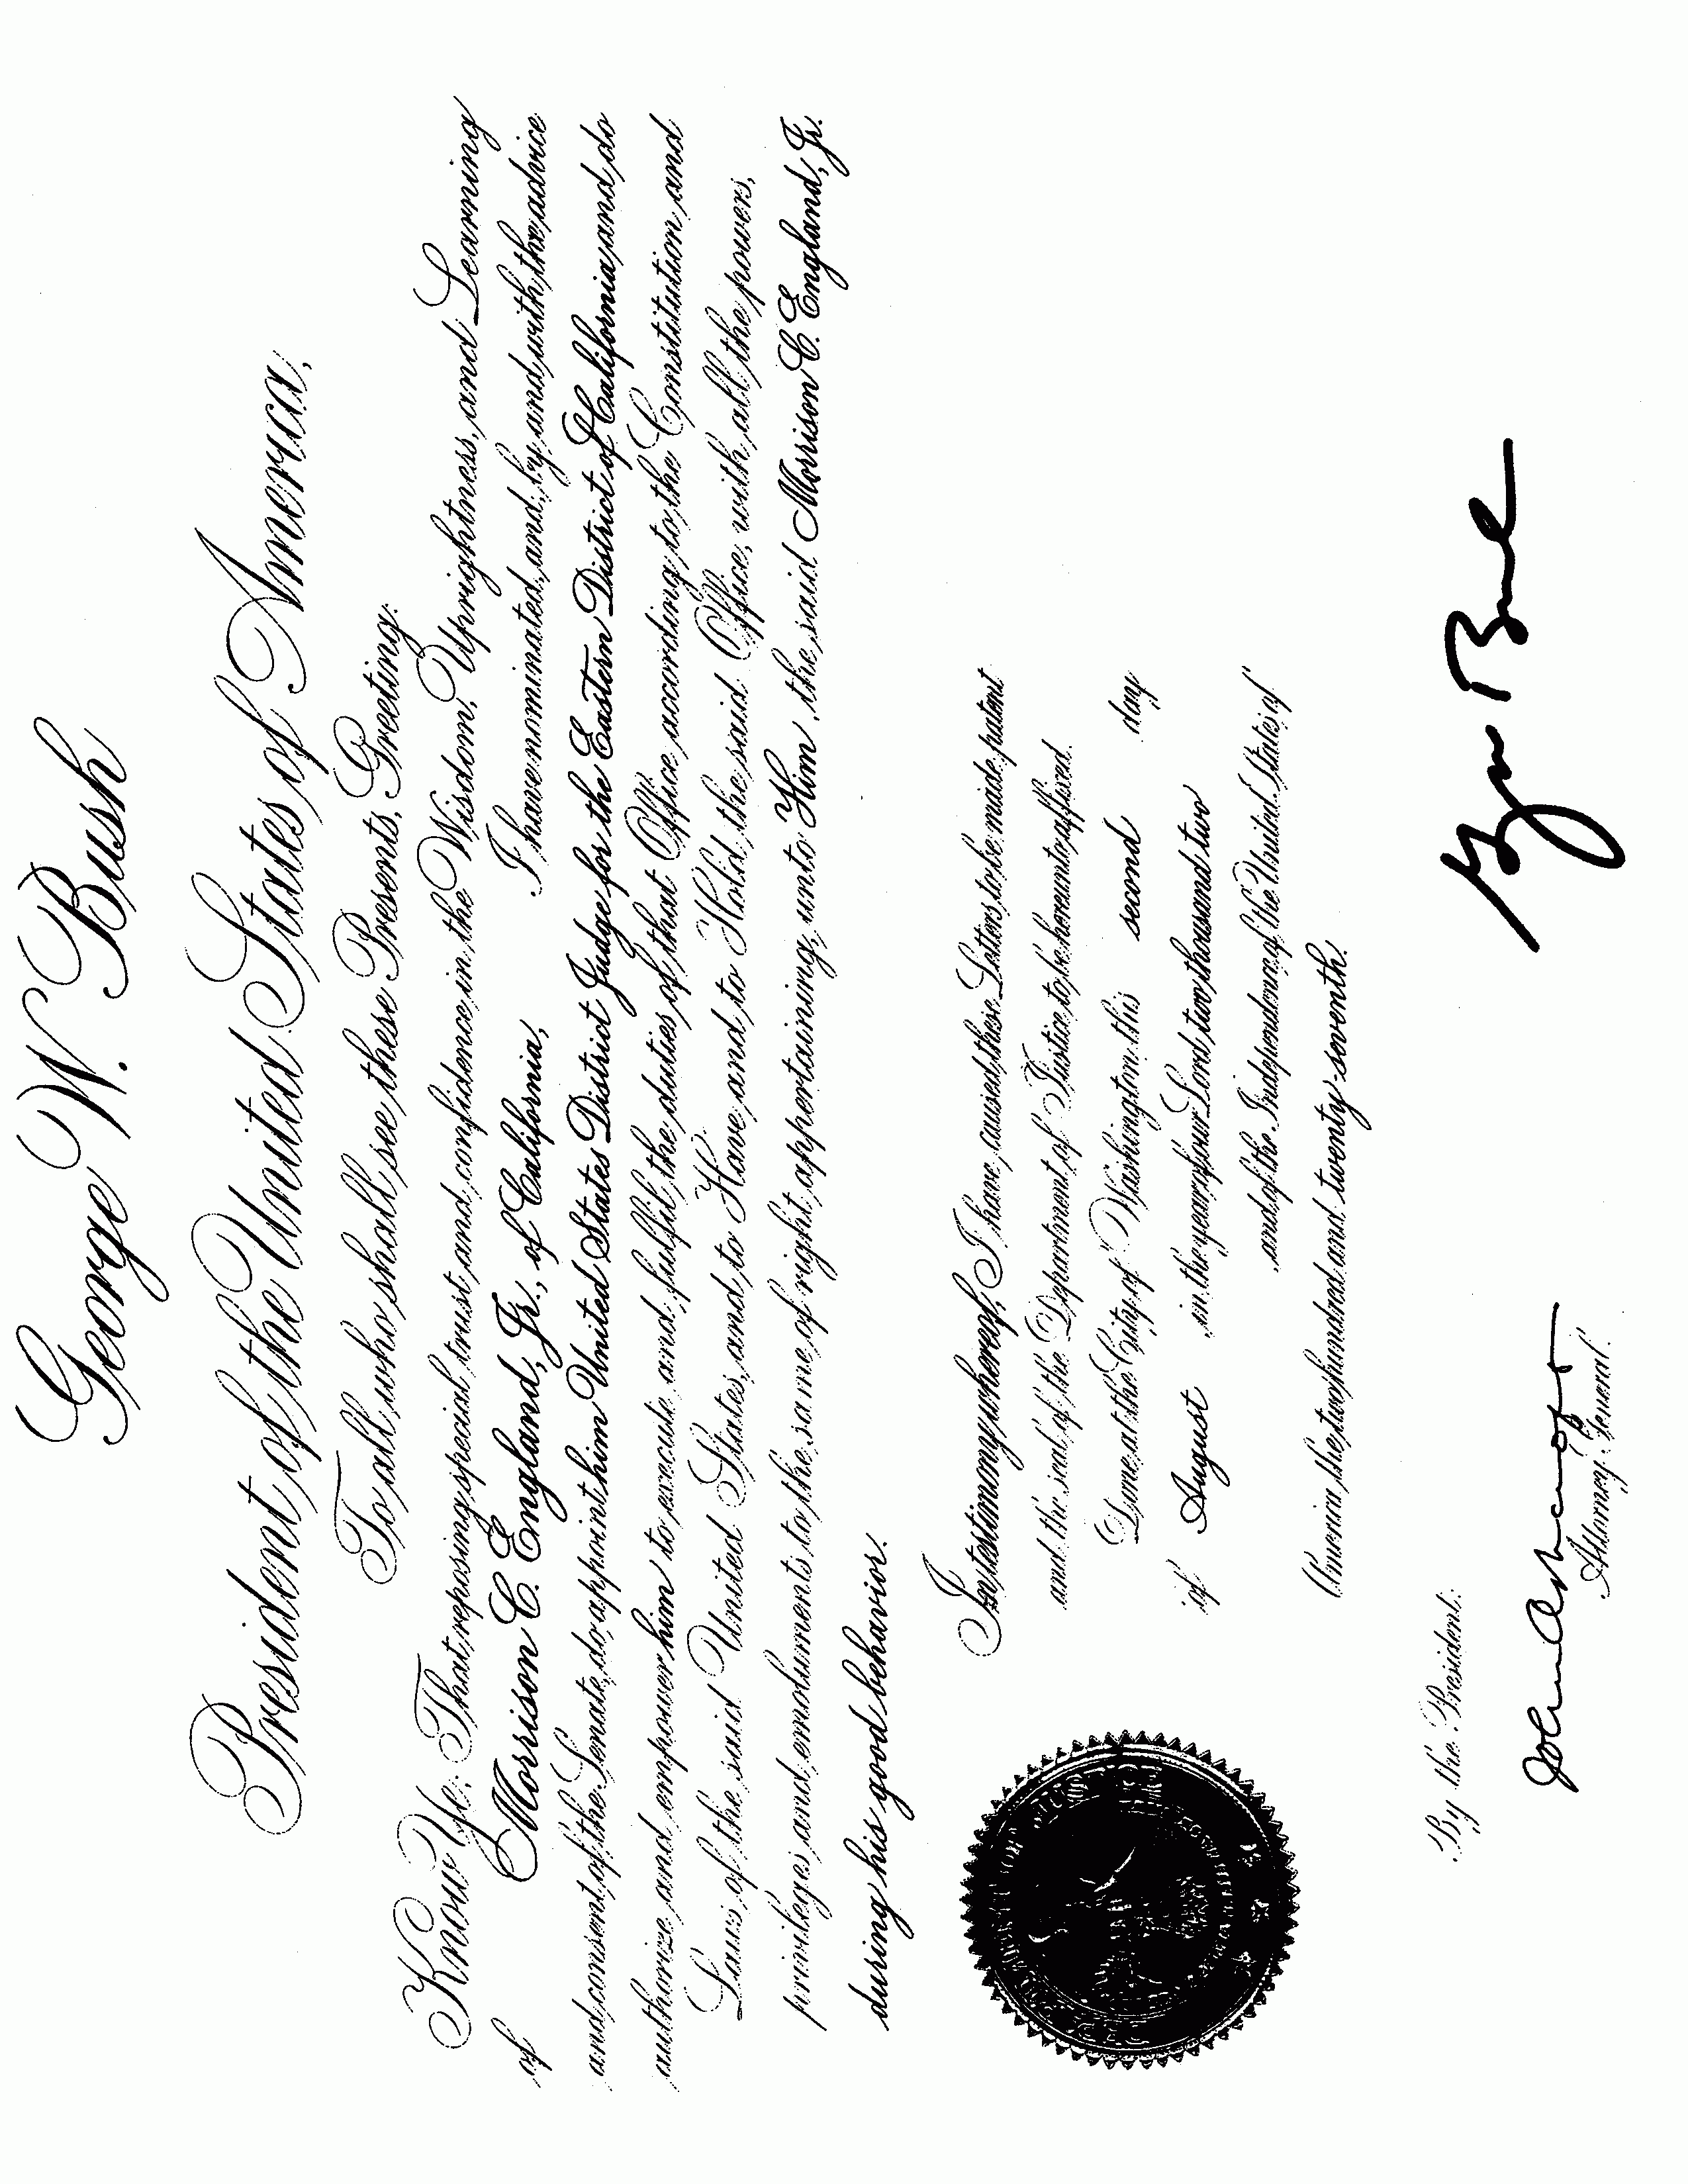 George W. Bush
President of the United States of America,
To all who shall see these Presents, Greeting:
Know Ye; That reposing special trust and confidence in the Wisdom, Uprightness, and Learning
of Morrison C. England, Jr., of California, I have nominated, and, by and with the advice
and consent of the Senate, do appoint him United States District Judge for the Eastern District of California and do
authorize and empower him to execute and fulfil the duties of that Office according to the Constitution and
Laws of the said United States, and to Have and to Hold the said Office, with all the powers,
privileges and emoluments to the same of right appertaining, unto Him, the said Morrison C. England, Jr.
during his good behavior.
In testimony whereof, I have caused these Letters to be made patent
and the seal of the Department of Justice to be hereunto affixed.
Done at the City of Washington this second day
of August in the year of our Lord two thousand two
and of the Independence of the United States of
America the two hundred and twenty-seventh.
By the President:
John Ashcroft
Attorney General.
JUSTICE